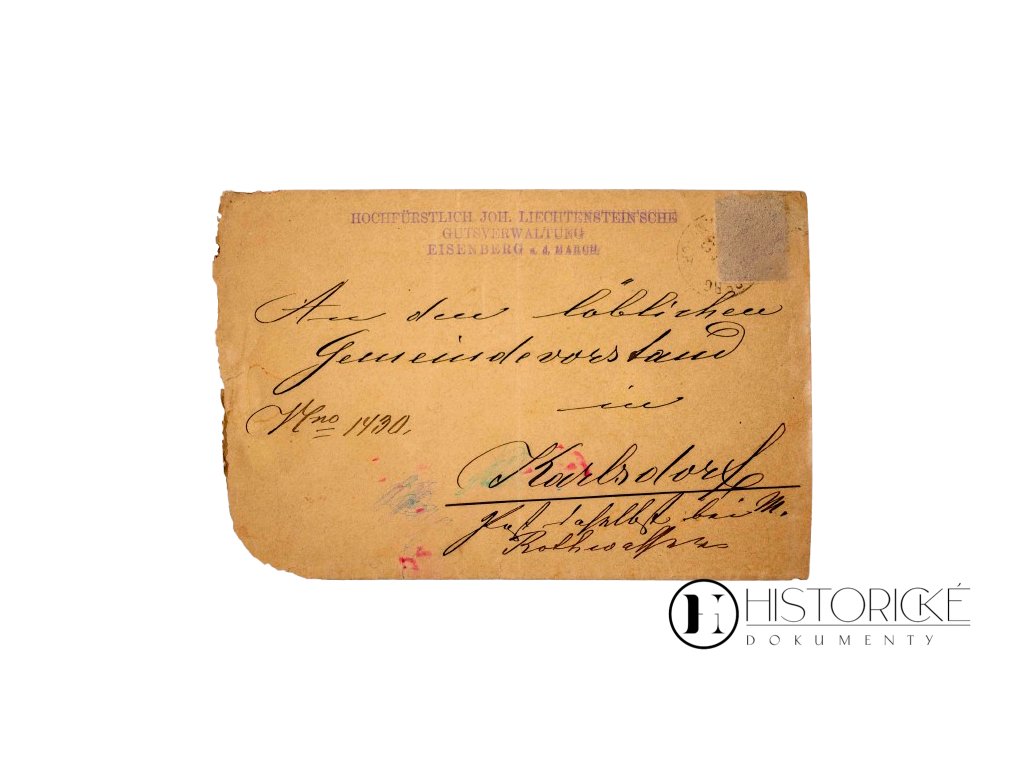 HOCHFÜRSTLICH JOH. LIECHTENSTEIN'SCHE
GUTSVERWALTUNG
EISENBERG a. d. MARCH.
An den löblichen
Gemeindevorstand
in
Nno 1430.
Karlsdorf
Post daselbst bei M.
Rothwasser
HISTORICKÉ
DOKUMENTY